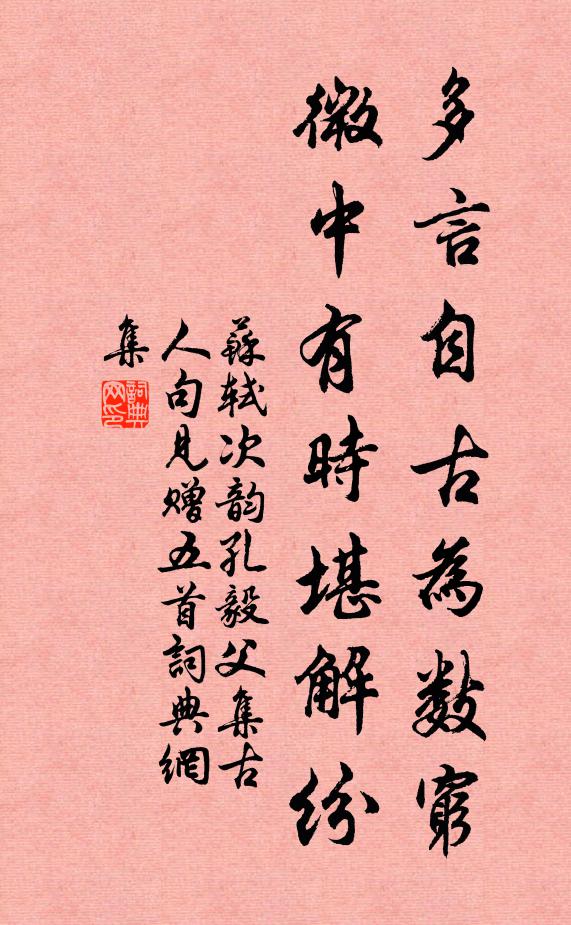 多言自古為數窮
微中有時堪解紛
蘇軾次韵孔毅父集古
人句見贈五首詞典網
集
詞典網印